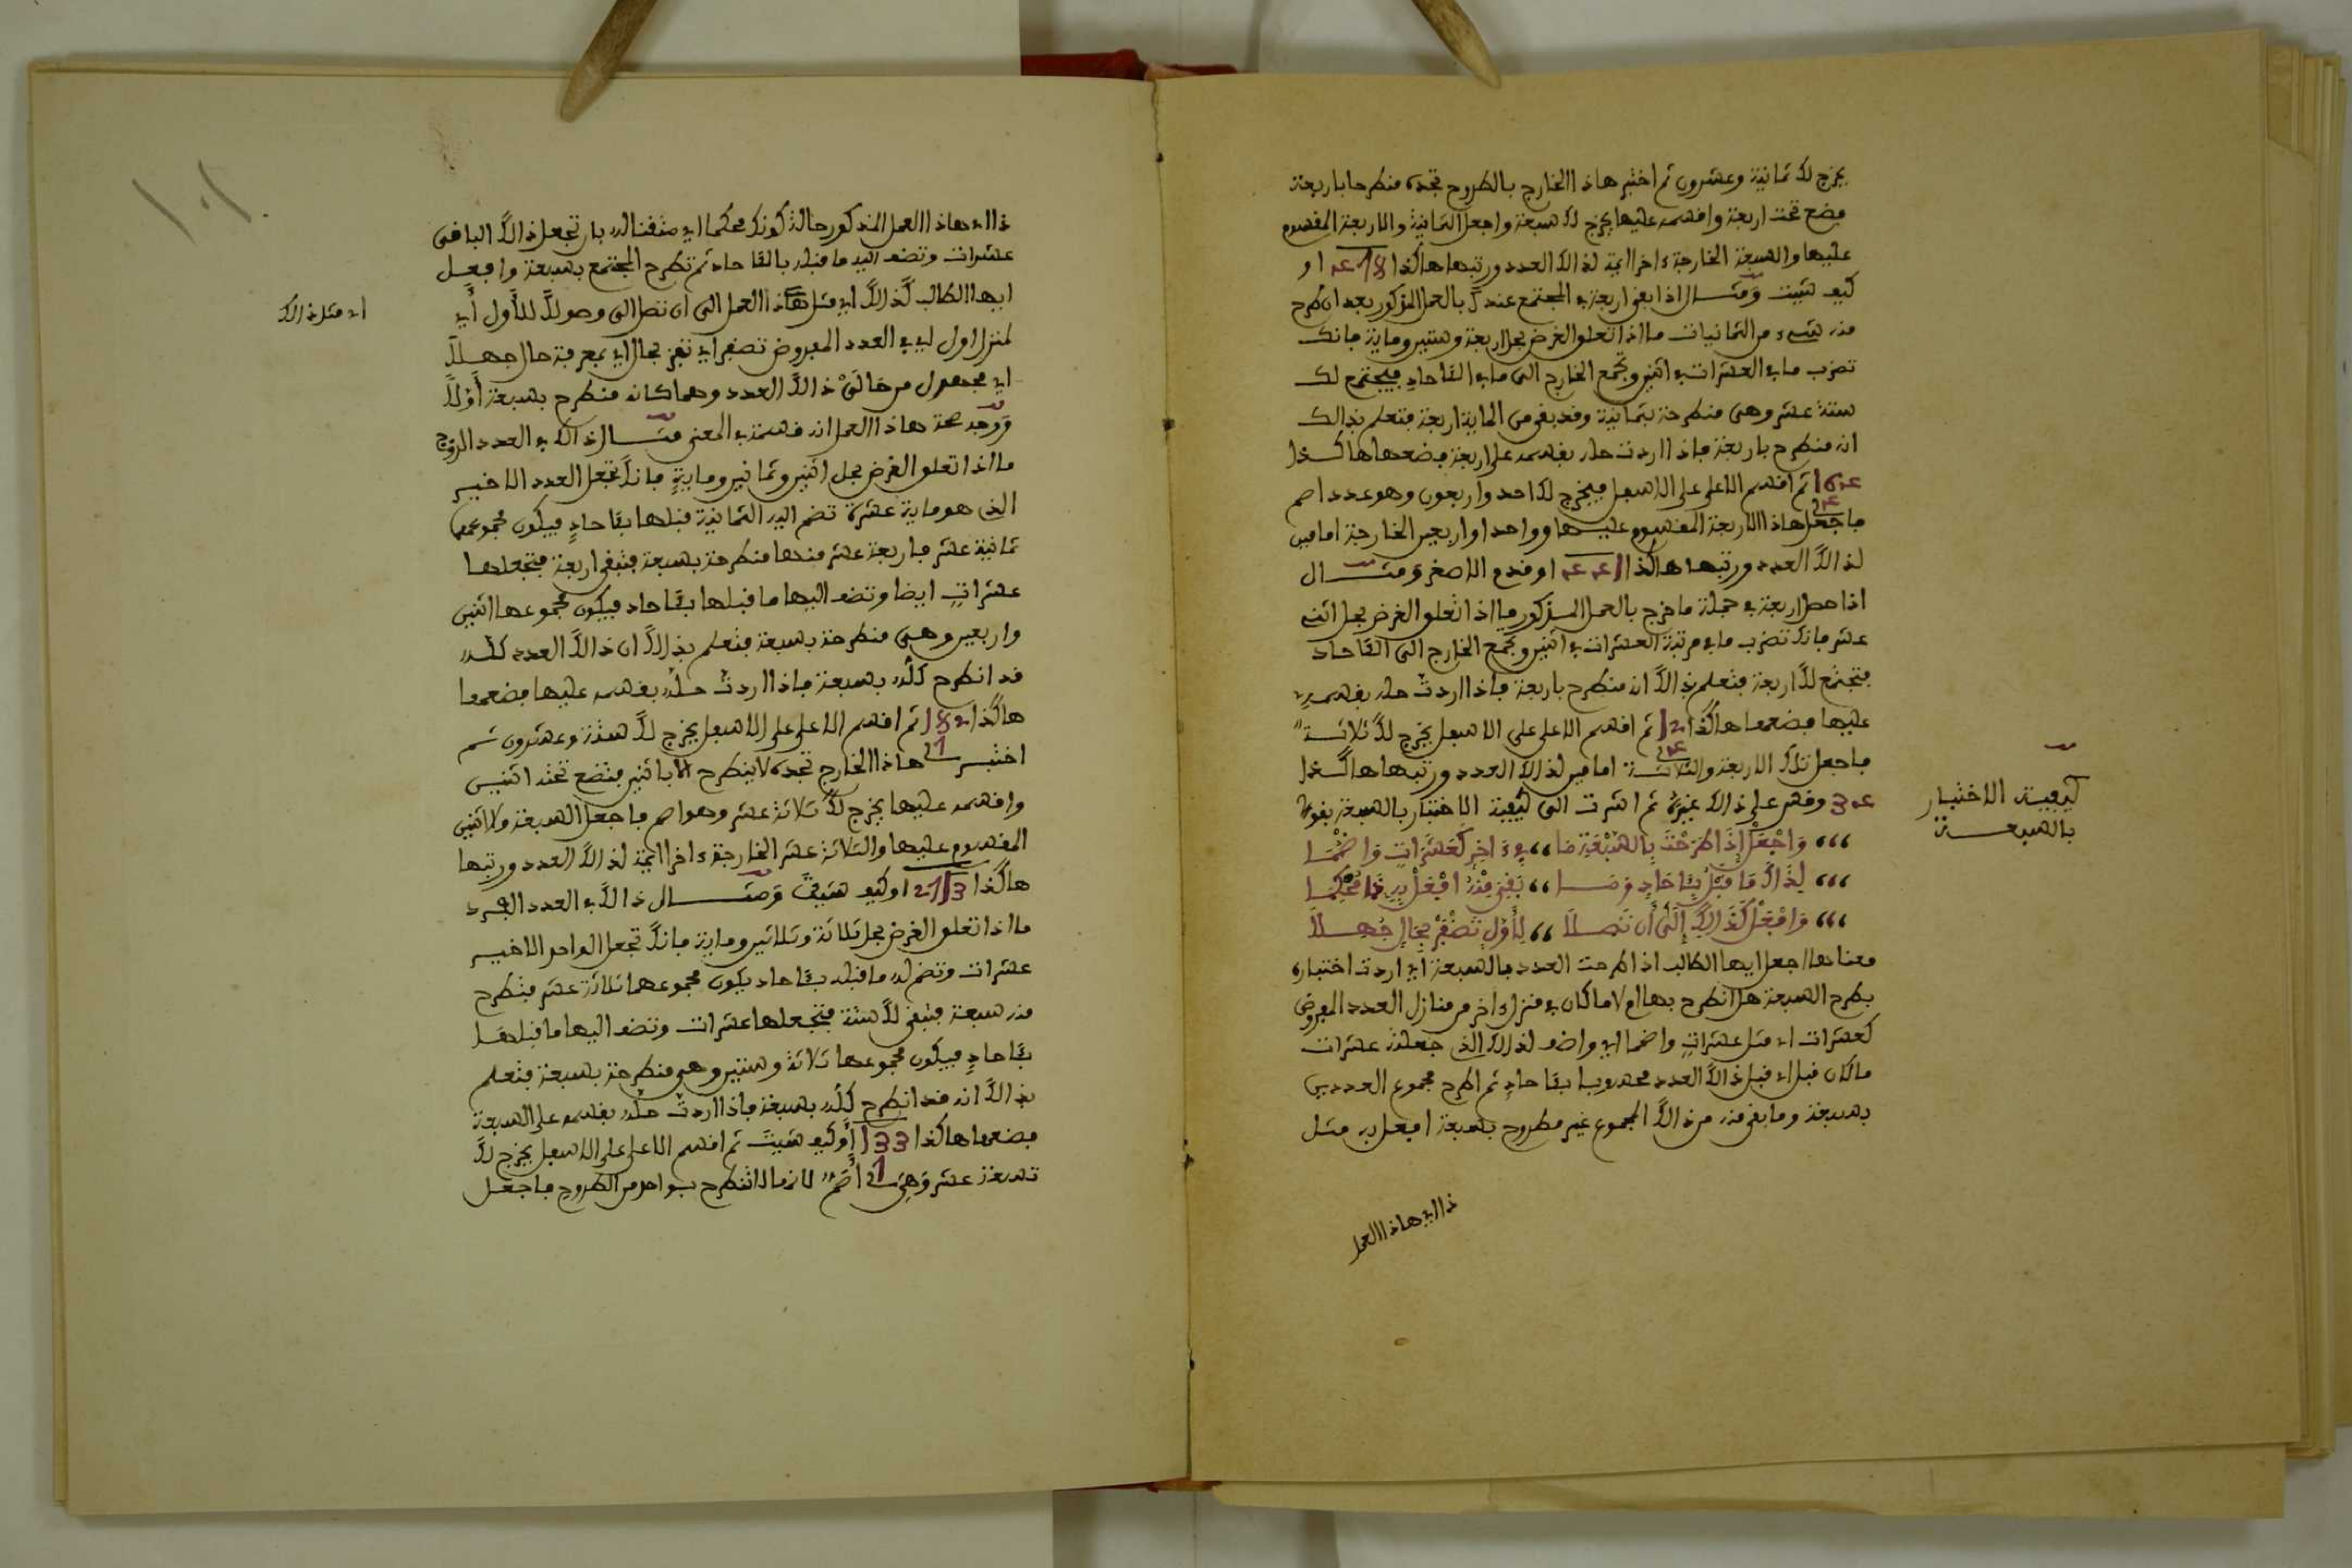 يخرج لك ثمانية وعشرون ثم اختبر هاذا الخارج بالطروح تجده منطرحا باربعة
فضع تحت اربعة وافسمه عليها يخرج لك سبعة واجعل الثمانية والاربعة المقسوم
عليها والسبعة الخارجة ءاخرا ايمة لذالك العدد ورتبها هاكذا او
كيف شييت ومثال اذا بقى اربعة في المجتمع عندك بالعمل المذكور بعد ان طرح
منه شيء من الثمانيات ما اذا تعلق الغرض بحل اربعة وستين وماية فانك
تضرب ما في العشرات في اثنين وتجمع الخارج الى ما في الئاحاد فيجتمع لك
ستة عشر وهي منطرحة بثمانية وقد بقي من الماية اربعة فتعلم بذالك
انه منطرح باربعة فاذا اردت حله بقسمه على اربعة فضعها هاكذا
164 ثم اقسم الاعلى على الاسفل فيخرج لك احد واربعون وهو عدد اصم
4
فاجعل هاذا الاربعة المقسوم عليها وواحدا واربعين الخارجة امامين
لذالك العدد ورتبها هاكذا او قدم الاصغر ومثال
اذا حصل اربعة في جملة ما خرج بالعمل المذكور ما اذا تعلق الغرض بحل اثنى
عشر فانك تضرب ما في مرتبة العشرات في اثنين وتجمع الخارج الى الئاحاد
فتجتمع لك اربعة فتعلم بذالك انه منطرح باربعة فاذا اردت حله بقسمه
عليها فضعها هاكذا 12 ثم اقسم الاعلى على الاسفل يخرج لك ثلاثة
4
فاجعل تلك الاربعة والثلاثة امامين لذالك العدد ورتبها هاكذا
34 وقس على ذالك غيره ثم اشرت الى كيفية الاختبار بالسبعة بقول
كيفية الاختبار
بالسبعة
،،، وَاجْعَلْ إِذَا طَرَحْتَ بِالسَّبْعَةِ مَا ،، فِي ءَاخِرٍ كَعَشَرَاتٍ وَاضْمُمَا
،،، لِذَاكَ مَا قَبْلُ بِئَاحَادٍ وَمَا ،، بَقِيَ مِنْهُ افْعَلْ بِهِ ذَا مُحْكِمَا
،،، وَافْعَلْ كَذَالِكَ إِلَى أَن تَصِلَا ،، لِأَوَّلٍ تَظْفَرْ بِحَالٍ جُهِلَا
معناها اجعل ايها الطالب اذا طرحت العدد بالسبعة اي اردت اختباره
بطرح السبعة هل انطرح بها ام لا ما كان في منزل ءاخر من منازل العدد المفروض
كعشرات اي مثل عشرات واضمما اي واضف لذالك الذي جعلته عشرات
ما كان قبل اي قبل ذالك العدد محسوبا بئاحاد ثم اطرح مجموع العددين
بسبعة وما بقى منه من ذالك المجموع غير مطروح بسبعة افعل به مثل
ذا اي هاذا العمل
ذا اي هاذا العمل المذكور حالة كونك محكما اي متقنا له بان تجعل ذالك الباقى
عشرات وتضف اليه ما قبله بالئاحاد ثم تطرح المجتمع بسبعة وافعل
ايها الطالب كذالك اي مثل هاذا العمل الى ان تصل الى وصولك للأول أي
اي مثل ذالك
لمنزل اول في العدد المفروض تضفر اي تفز بحال اي بمعرفة حال جهلا
اي مجهول من حالتي ذالك العدد وهما كانه منطرح بسبعة أو لا
ووجه صحة هاذا العمل انه قسمة في المعنى مثال ذالك في العدد الزوج
ما اذا تعلق الغرض بحل اثنين وثمانين وماية فانك تجعل العدد الاخير
الذي هو ماية عشرة تضم اليه الثمانية قبلها بئاحاد فيكون مجموعهما
ثمانية عشر فاربعة عشر منها منطرحة بسبعة فتبقى اربعة فتجعلها
عشرات ايضا وتضف اليها ما قبلها بئاحاد فيكون مجموعها اثنين
واربعين وهي منطرحة بسبعة فتعلم بذالك ان ذالك العدد كله
قد انطرح كله بسبعة فاذا اردت حله بقسمه عليها فضعها
هاكذا 182 ثم اقسم الاعلى على الاسفل يخرج لك ستة وعشرون ثم
اختبر هاذا الخارج تجده لا ينطرح الا باثنين فتضع تحته اثنين
وافسمه عليها يخرج لك ثلاثة عشر وهو اصم فاجعل السبعة والاثنين
المقسوم عليها والثلاثة عشر الخارجة ءاخرا ايمة لذالك العدد ورتبها
هاكذا او كيف شييت ومثال ذالك في العدد الفرد
ما اذا تعلق الغرض بحل ثلاثة وثلاثين وماية فانك تجعل الواحد الاخير
عشرات وتضم له ما قبله بئاحاد يكون مجموعهما ثلاثة عشر فتطرح
منه سبعة فتبقى لك ستة فتجعلها عشرات وتضف اليها ما قبلها
بئاحاد فيكون مجموعها ثلاثة وستين وهي منطرحة بسبعة فتعلم
بذالك انه قد انطرح كله بسبعة فاذا اردت حله بقسمه على السبعة
فضعها هاكذا 133 أو كيف شييت ثم اقسم الاعلى على الاسفل يخرج لك
تسعة عشر وهي أصم لانها لا تنطرح بواحد من الطروح فاجعل